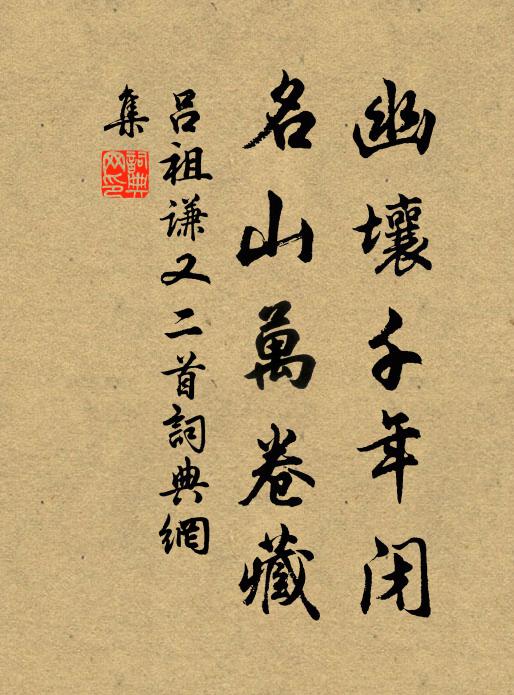 幽壤千年闭
名山萬卷藏
吕祖谦又二首詞典網
集
詞典
网印